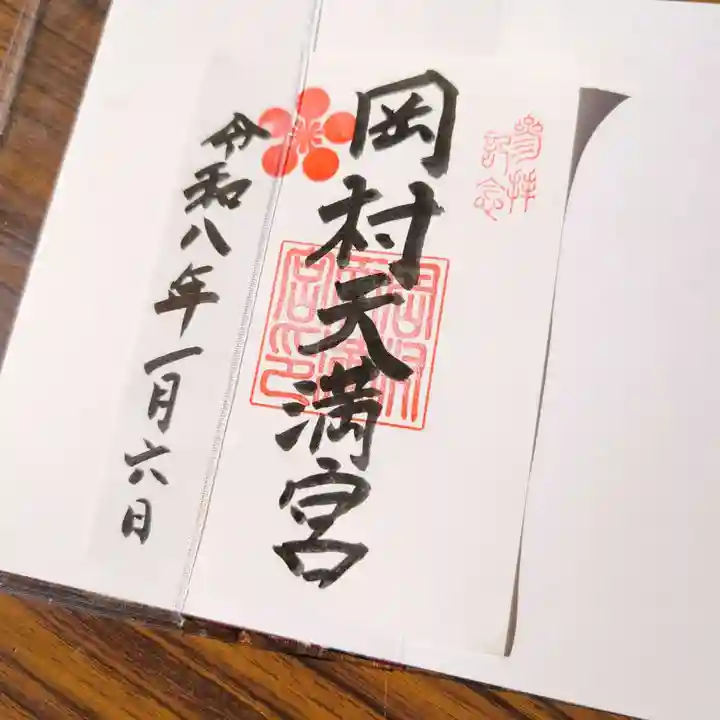 参拝記念
岡村天満宮
令和八年一月六日